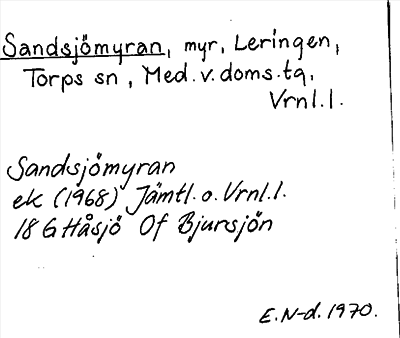 Sandsjömyran, myr, Leringen,
Torps sn, Med. v. doms. tg.
Vrnl. l.
Sandsjömyran
ek (1968) Jämtl. o. Vrnl. l.
18 G Håsjö Of Bjursjön
E. N-d. 1970.